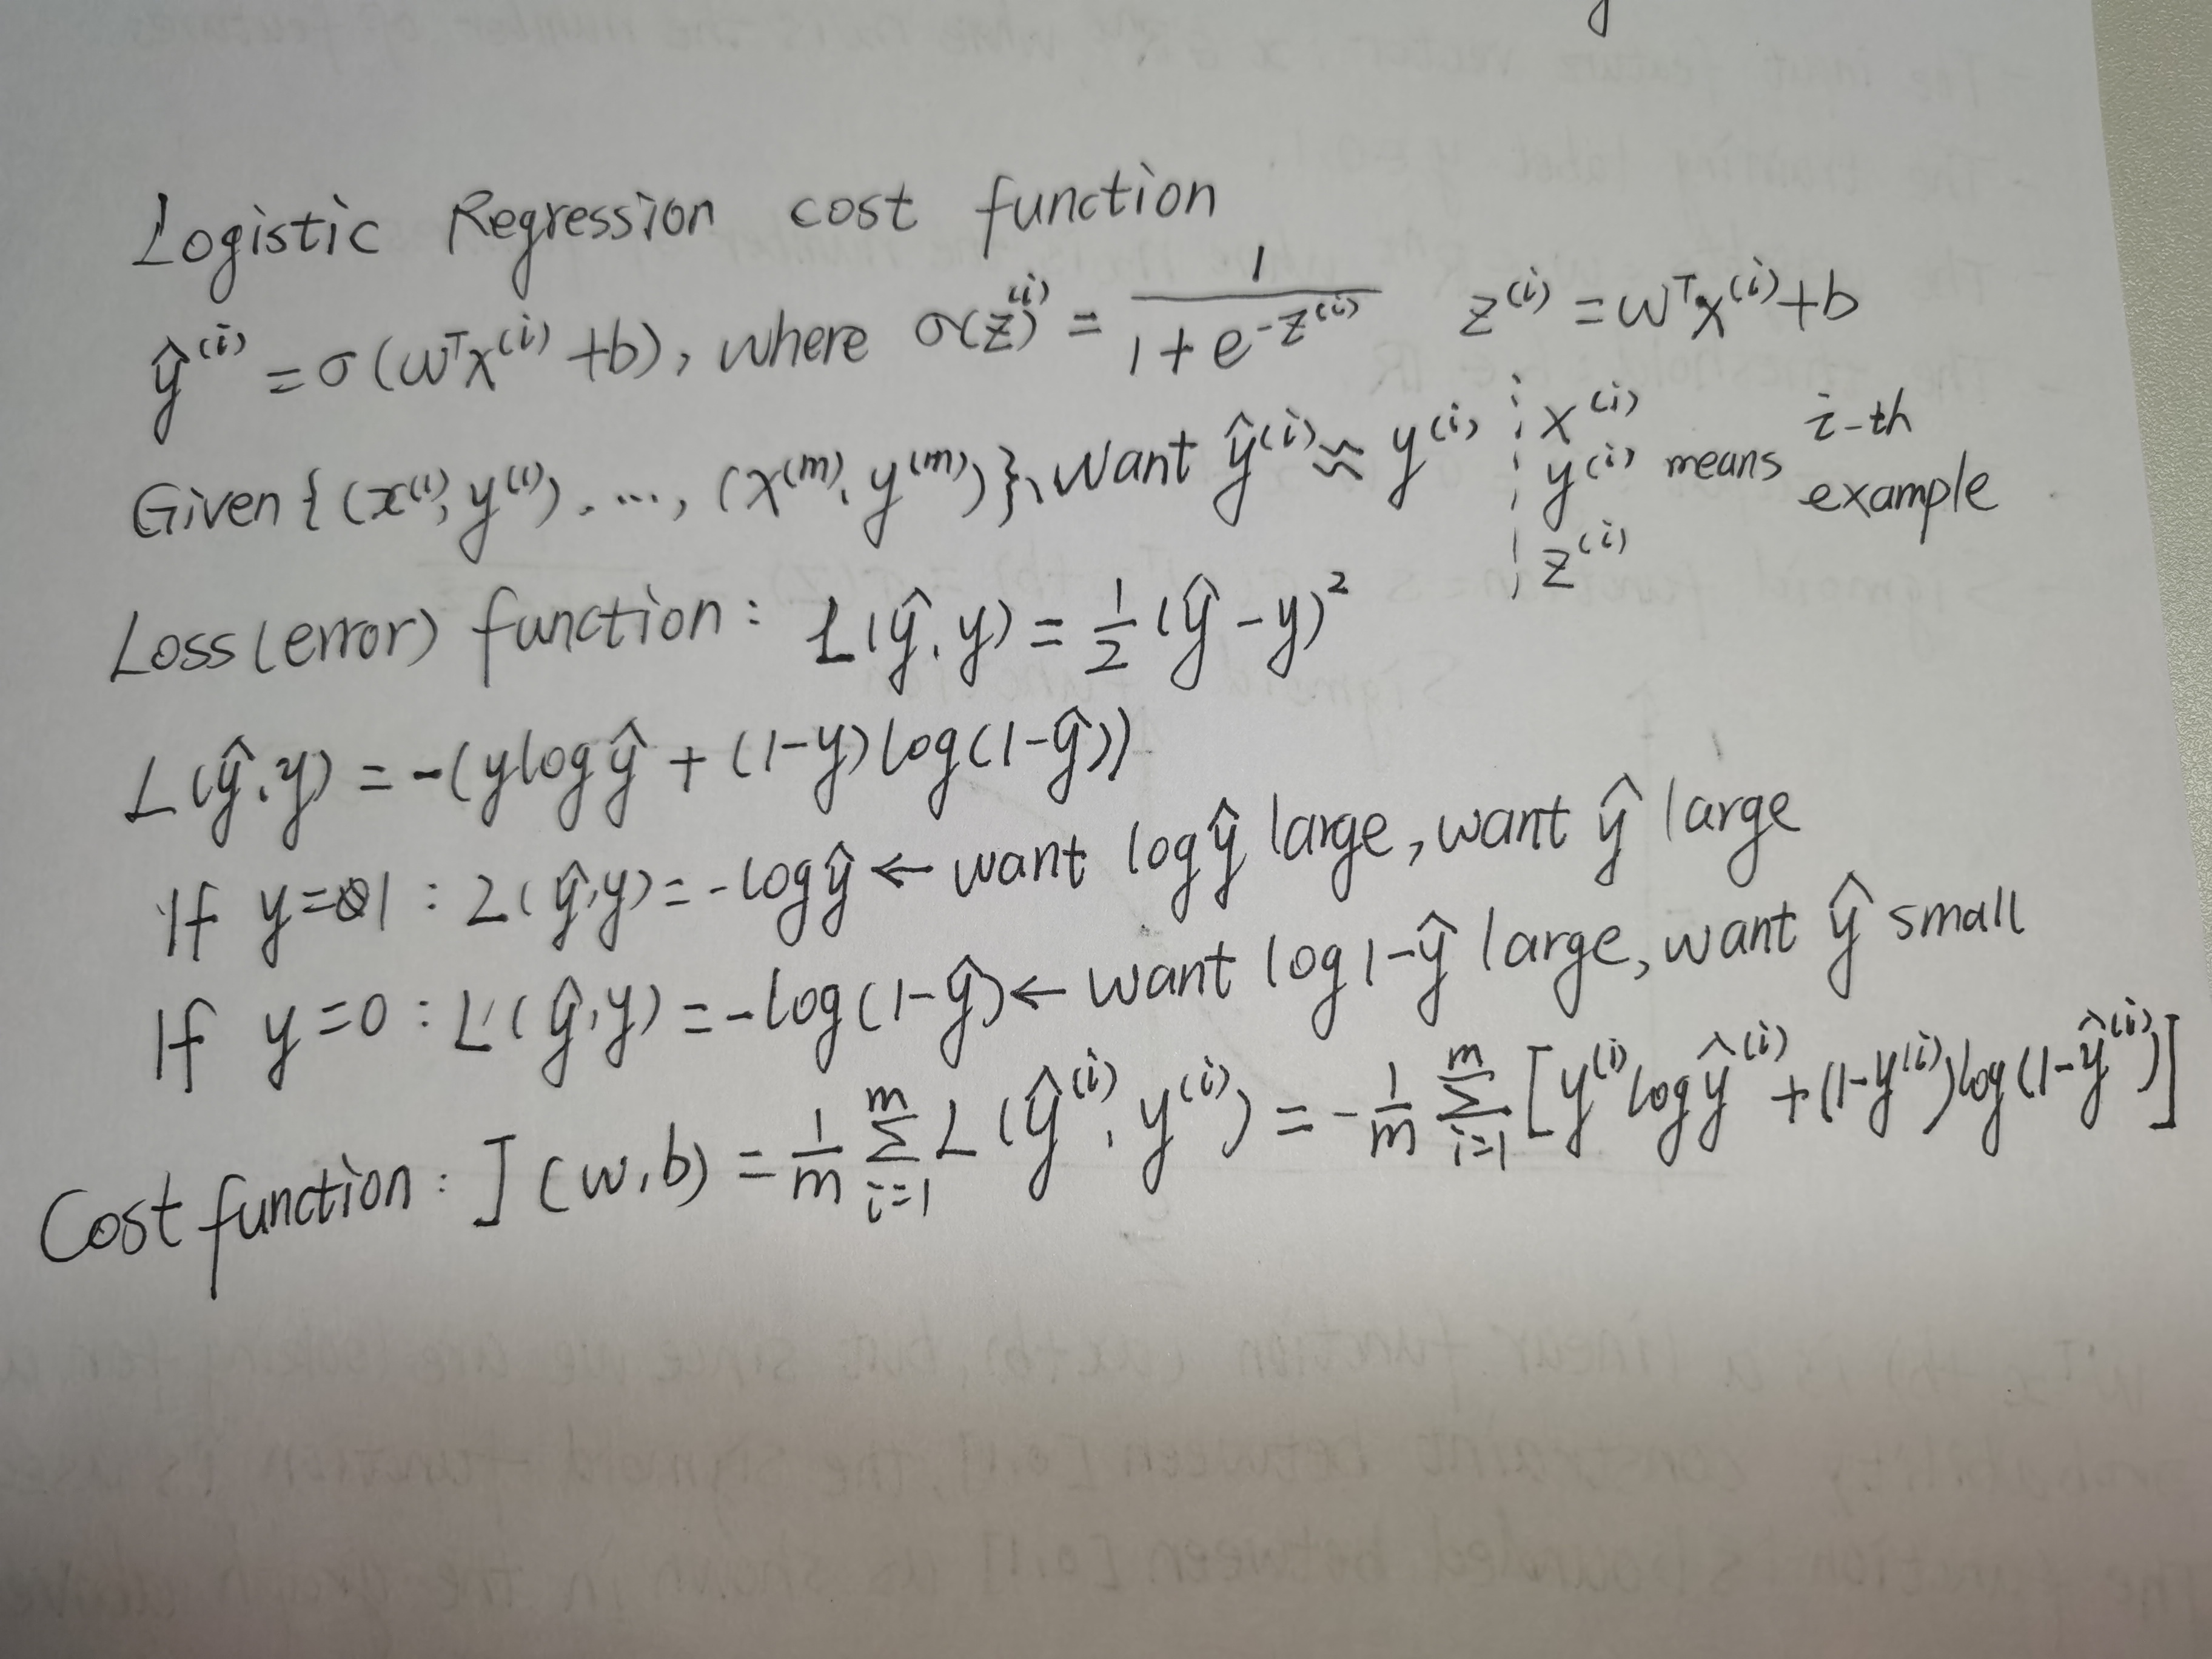 Logistic Regression cost function
ŷ⁽ⁱ⁾ = σ(wᵀx⁽ⁱ⁾ + b), where σ(z)⁽ⁱ⁾ = 1 / (1 + e^(-z⁽ⁱ⁾)) z⁽ⁱ⁾ = wᵀx⁽ⁱ⁾ + b
Given {(x⁽¹⁾, y⁽¹⁾), ..., (x⁽ᵐ⁾, y⁽ᵐ⁾)}, want ŷ⁽ⁱ⁾ ≈ y⁽ⁱ⁾
x⁽ⁱ⁾
y⁽ⁱ⁾ means i-th example
z⁽ⁱ⁾
Loss (error) function: L(ŷ, y) = 1/2 (ŷ - y)²
L(ŷ, y) = -(y log ŷ + (1-y) log(1-ŷ))
If y=1 : L(ŷ, y) = -log ŷ ← want log ŷ large, want ŷ large
If y=0 : L(ŷ, y) = -log(1-ŷ) ← want log 1-ŷ large, want ŷ small
Cost function: J(w, b) = 1/m Σᵢ₌₁ᵐ L(ŷ⁽ⁱ⁾, y⁽ⁱ⁾) = -1/m Σᵢ₌₁ᵐ [y⁽ⁱ⁾ log ŷ⁽ⁱ⁾ + (1-y⁽ⁱ⁾) log(1-ŷ⁽ⁱ⁾)]